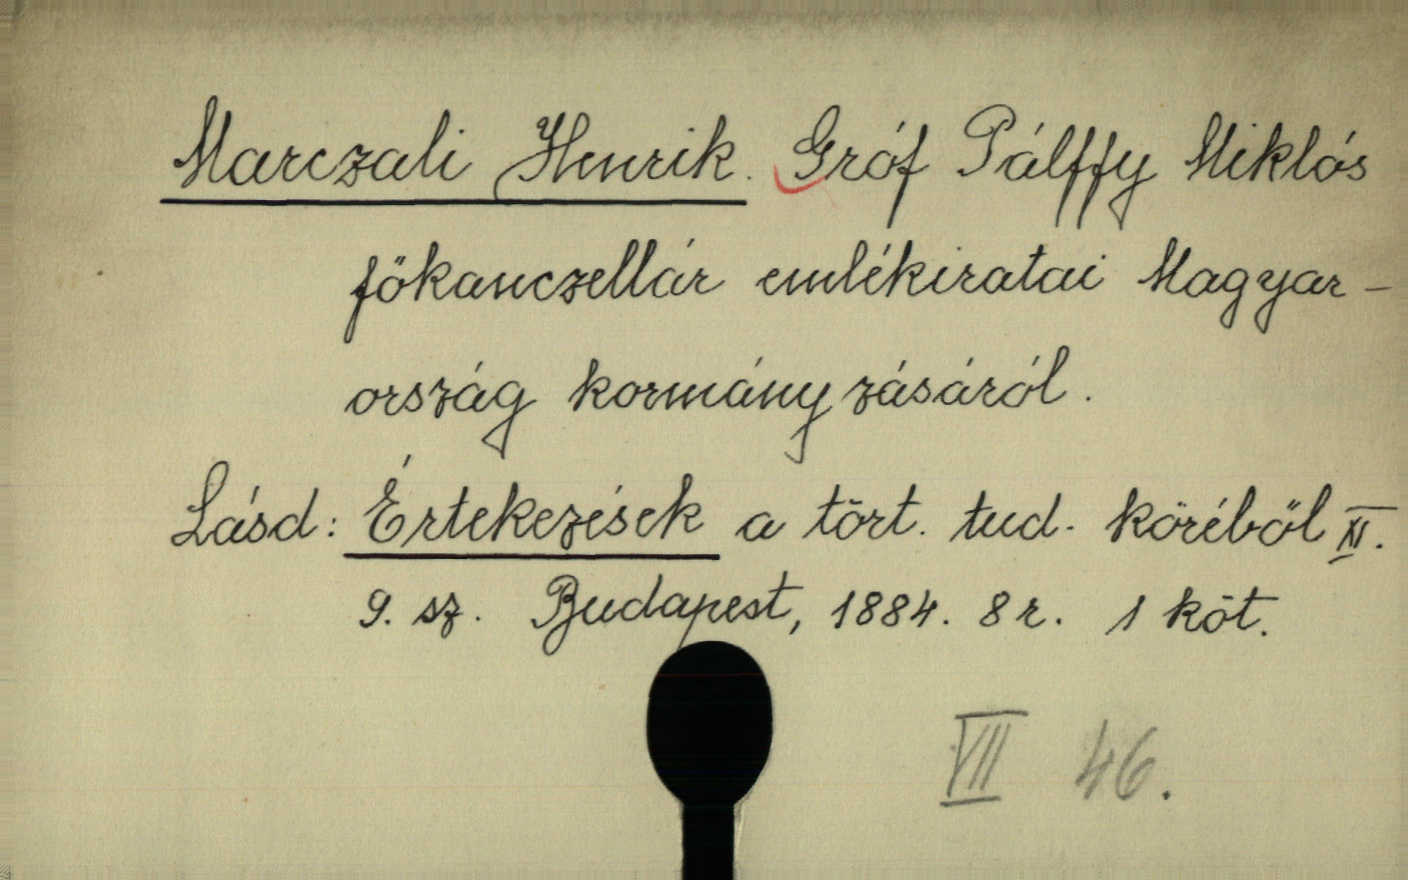 Marczali Henrik. Gróf Pálffy Miklós
főkanczellár emlékiratai Magyar-
ország kormányzásáról.
Lásd: Értekezések a tört. tud. köréből XI.
9. sz. Budapest, 1884. 8 r. 1 köt.
VII 46.